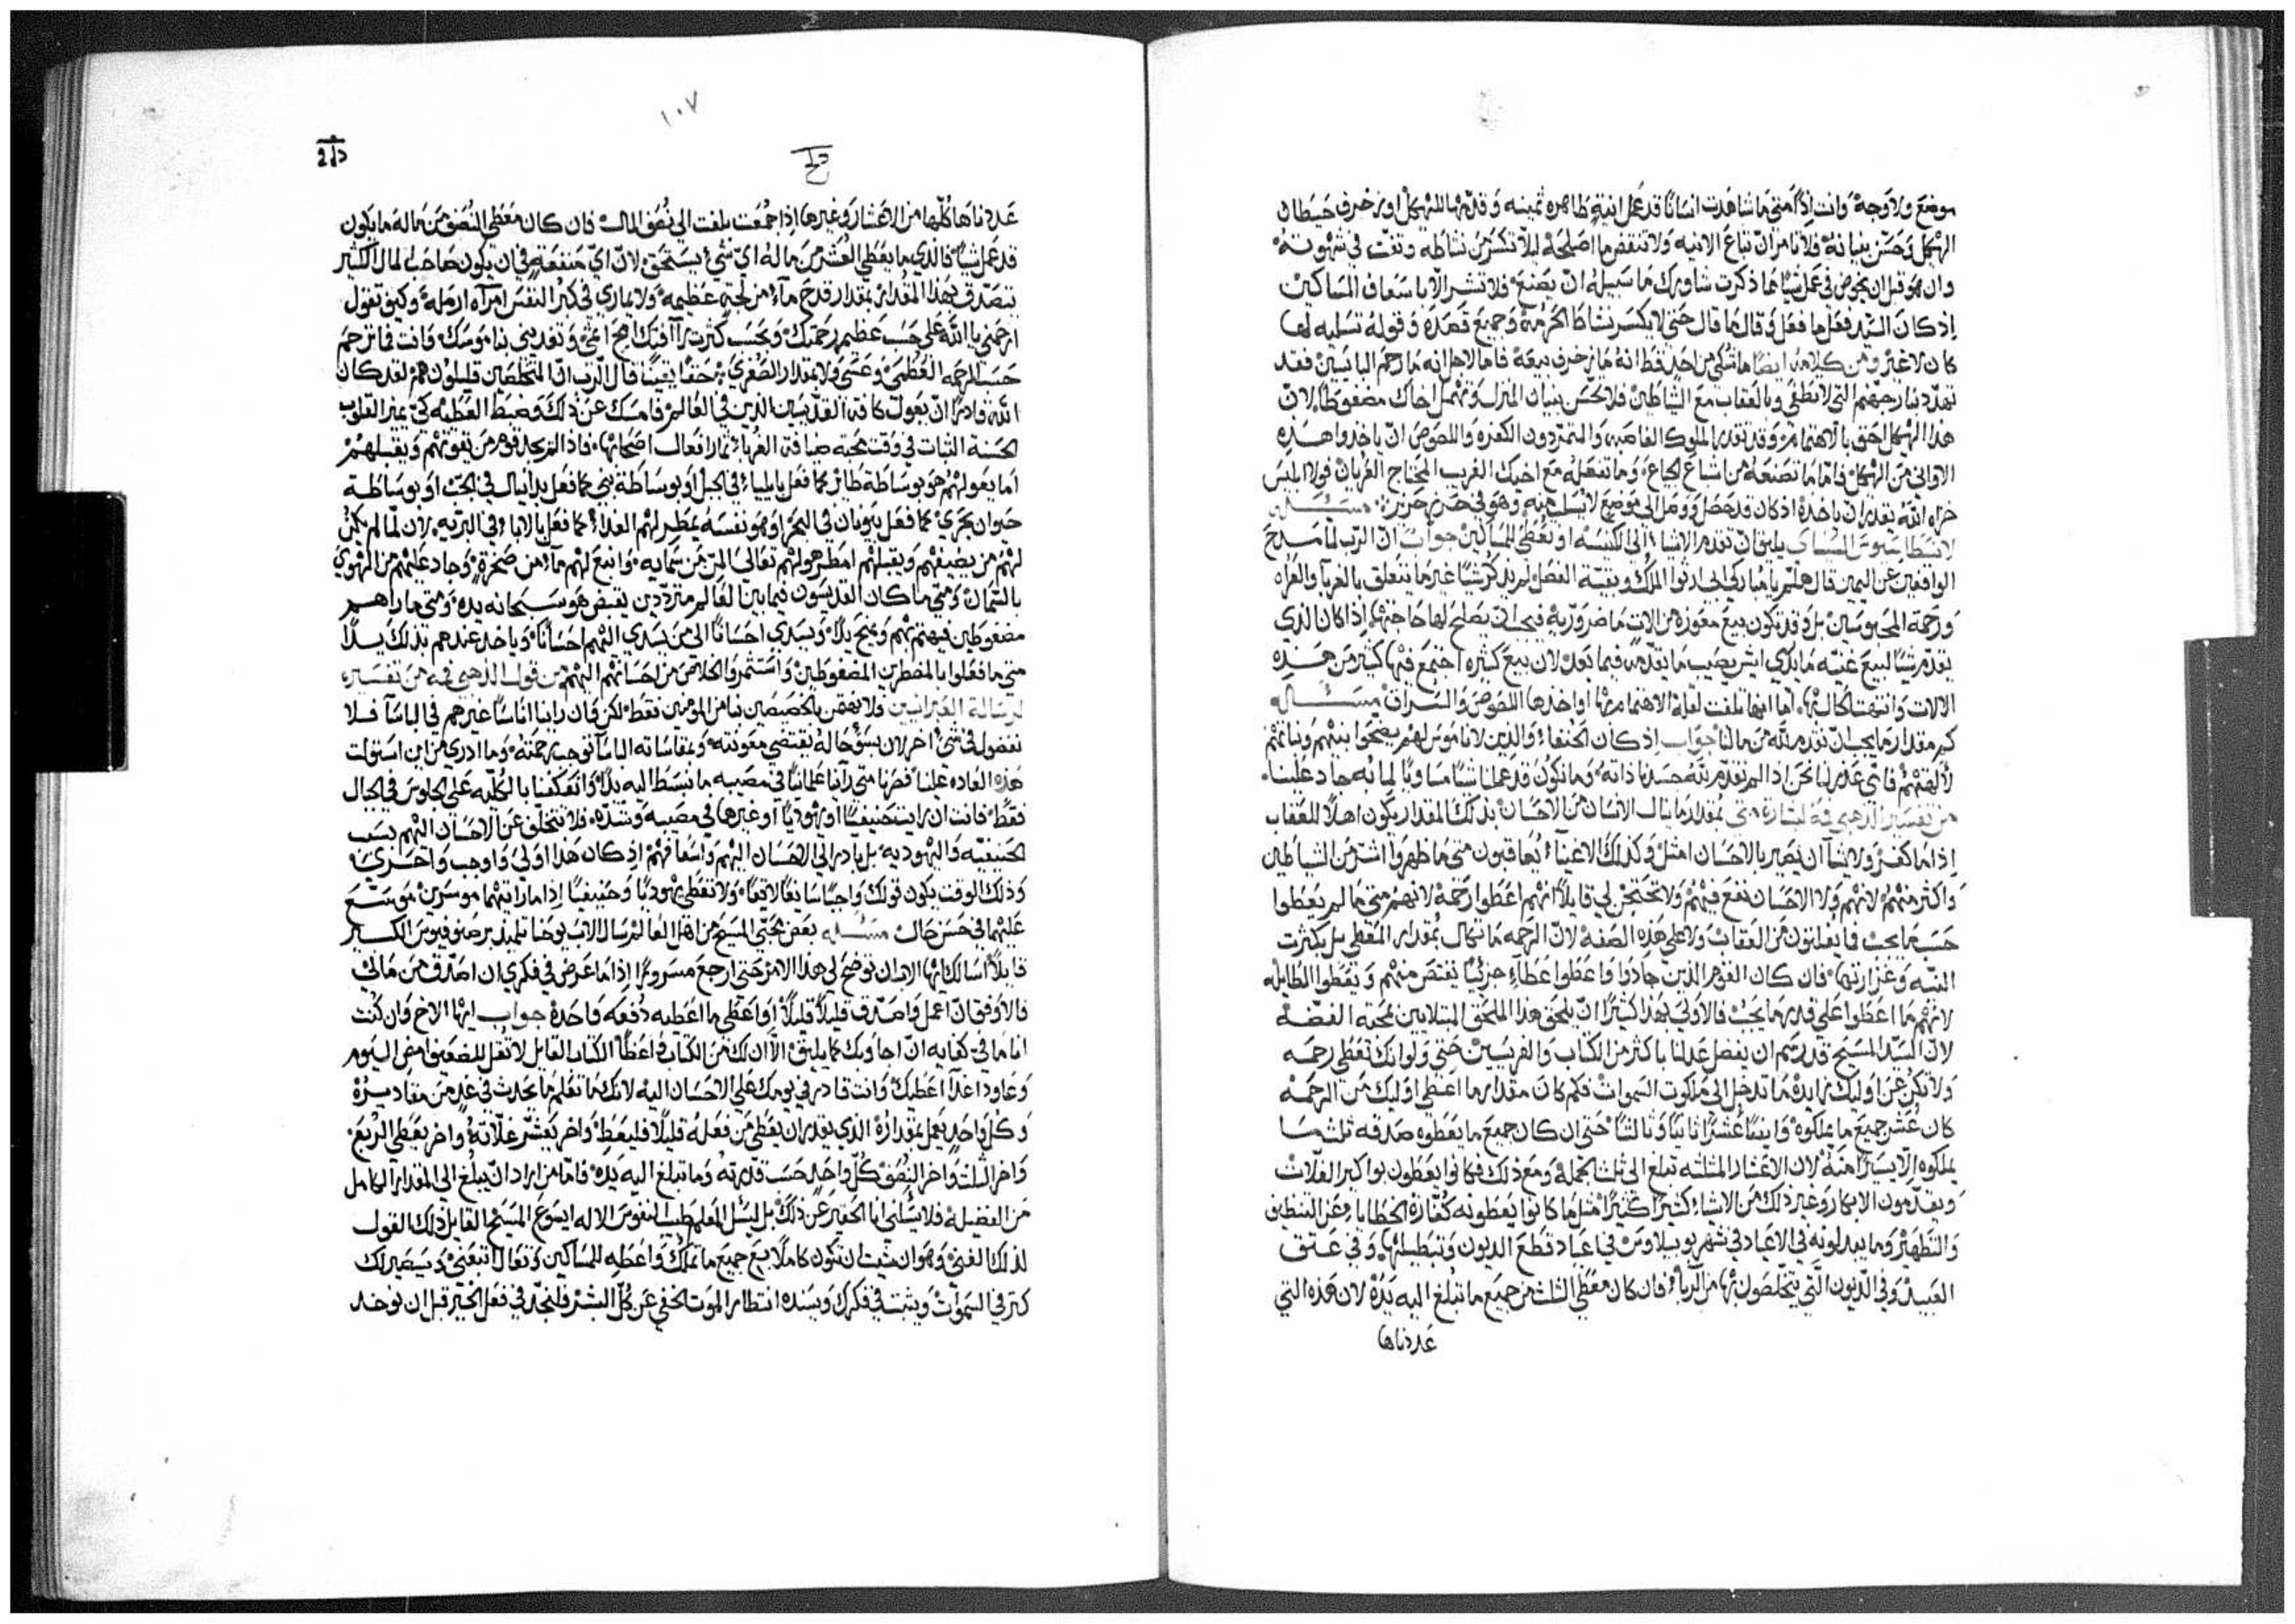 موضع ولا وجه وانت اذًا متى ما شاهدت انسانًا قد عمل انية طاهره ثمينه وقدمها للهيكل او زخرف حيطان
الهيكل وحسّن بنيانه فلا تامر ان تباع الانيه ولا تنقض ما اصلحه ليلا تكسر من نشاطه وتفت في شهوته
وان هو قبل ان يخوض في عمل شيًا مما ذكرت شاورك ما سبيله ان يصنع فلا تشر الا باسعاف المساكين
اذ كان السيد فعل ما فعل وقال ما قال حتى لا يكسر نشاط الحرمه وجميع قصده وقوله تسليه لها
كان لا غير ومن كلامه ايضًا ما شكي من احد قط انه ما زخرف بيعة فاما لاهل انه ما رحم البايسين فقد
تهدد بنار جهنم التي لا تطفى وبالعقاب مع الشياطين فلا تحسّن بنيان المنزل وتهمل اخاك مضغوطًا لان
هذا الهيكل احق بالاهتمام وقد تقدر الملوك الغاصبه والمتمردون الكفره واللصوص ان ياخدوا هذه
الاواني من الهيكل فاما ما تصنعه من اشباع الجياع وما تفعله مع اخيك الغريب المحتاج العريان فولا ابليس
خزاه الله يقدر ان ياخده اذ كان قد حصل ووصل الى موضع لا يسلب فيه وهو في حرز حريز مسئله
لانسطاسيوس السينائي يليق ان تقدم الاشياء الى الكنيسه او تعطى للمساكين جواب ان الرب لما مدح
الواقفين عن اليمين قال هلم يا مباركي ابي ارثوا الملك وبقية الفصل لم يذكر شيًا غير ما يتعلق بالغربا والعراه
ورحمة المحبوسين بل وقد تكون بيع معوزه من الات ما ضرورية فيجب ان يصلح لها حاجتها اذا كان الذي
يقدم شيًا لبيع غنيه ما يدري ايش يصيب ما يقدمه فيما بعد لان بيع كثيره اجتمع فيها كثير من هذه
الالات وانتهت لحال انها اما انها تلفت لقلة الاهتمام بها او اخدها اللصوص والسراق مسئله
كم مقدار ما يجب ان نقدم لله من مالنا جواب اذ كان الحنفاء والذين لا ناموس لهم يضحوا ببنيهم وبناتهم
لالهتهم فاي عذر لنا نحن اذا لم نقدم لله حسدنا ذاته وما نكون قد عملنا شيًا مساويًا لما به جاد علينا
من تفسير الذهبي فمه لبشارة متى بمقدار ما ينال الانسان من الاحسان بذلك المقدار يكون اهلًا للعقاب
اذا ما كفر ولا يشا ان يصير بالاحسان امثل وكذلك الاغنياء يعاقبون متى ما ظهروا اشر من الشياطين
واكثر منهم لانهم ولا الاحسان نفع فيهم ولا تحتج لي قايلًا انهم اعطوا رحمة لانهم متى ما لم يعطوا
حسب ما يجب فما يفلتون من العقاب ولا على هذه الصفه لان الرحمه ما تكال بمقدار المعطى بل بكثرت
النيه وغزارتها فان كان القوم الذين جادوا واعطوا عطاء جزئيًا يقتص منهم ويعطوا الطايله
لانهم ما اعطوا على قدر ما يجب فالاولى بهذا كثيرًا ان يلحق هذا الملحق المبتلايين بمحبة الفضه
لان السيد المسيح قد رسم ان يفضل عدلنا باكثر من الكتاب والفريسيين حتى ولو انك تعطي رحمه
ولا تكن عن اوليك زايده ما تدخل الى ملكوت السموات فكم كان مقدار ما اعطى اوليك من الرحمه
كان عُشر جميع ما يملكوه وايضًا عُشرًا ثانيًا وثالثًا حتى ان كان جميع ما يعطوه صدقه ثلث ما
يملكوه الا يسيرًا منه لان الاعشار المثلثه تبلغ الى ثلث الجمله ومع ذلك فكانوا يعطون بواكير الغلات
ويقدمون الابكار وغير ذلك من الاشياء كثيرًا كثيرًا مثل ما كانوا يعطونه كفارة الخطايا وعن التنظيف
والتطهير وما يبدلونه في الاعياد في شهر يوبيلاوس في اعياد قطع الديون وتبطيلها وفي عتق
العبيد وفي الديون التي يتخلصون بها من الرباء فان كان معطي الثلث من جميع ما تبلغ اليه يده لان هذه التي
عددناها
١٠٧
عددناها كلها من الاعشار وغيرها اذا جمعت بلغت الى نصف المال فان كان معطي النصف من ماله ما يكون
قد عمل شيًا فالذي ما يعطي العشر من ماله اي شي يستحق لان اي منفعة في ان يكون صاحب المال الكثير
يتصدق بهذا المقدار بمقدار قدح ماء من لجة عظيمه ولا يماري في كبر النفس امرآه ارمله وكيف تقول
ارحمني يا الله على حسب عظيم رحمتك وبحسب كثرت رآفتك امح اثمي وتعديني بناموسك وانت فما ترحم
حسب الرحمه العظمى وعسى ولا بمقدار الصغرى حقًا يقينًا قال الرب ان المتخلصين قليلون هم لقد كان
الله قادرًا ان يعول كافة القديسين الذين في العالم فامسك عن ذلك وضبط العطيه كي يميز القلوب
الحسنة الثبات في وقت محبة ضيافة الغرباء ثمار افعال اصحابها واذا لم يجد قوم من يقوتهم ويقبلهم
اما يعولهم هو بوساطة طائر كما فعل بايلياء في الجبل او بوساطة نبي كما فعل بدانيال في الجب او بوساطة
حيوان بحري كما فعل بيونان في البحر او هو نفسه يمطر لهم الغذاء كما فعل بالاباء في البريه لان لما لم يكن
لهم من يضيفهم ويقبلهم امطر هو لهم تعالى المن من سمايه وانبع لهم ماء من صخرة وجاد عليهم من الهوى
بالسمان ومتى ما كان القديسون فيما بين العالم مترددين يقبض هو سبحانه يده ومتى ما راهم
مضغوطين فيهتم بهم ويمنح يدًا ويسدي احسانًا الى من يسدي اليهم احسانًا وياخد عندهم تذلك يدًا
متى ما فعلوا بالمضطرين المضغوطين واستثمروا الخلاص من احسانهم اليهم من قول الذهبي فمه من تفسيره
لرسالة العبرانيين ولا نهتمن بالخصيصين بنا من المومنين فقط لكن فان راينا اناسًا غيرهم في الباسآ فلا
نفضول في شيء اخر لان بسوء حاله يقتضي معونته ومقاساته الباسآ توجب رحمته وما ادري من اين استولت
هذه العاده علينا فصرنا متى رآينا علمانيًا في مصيبه ما نبسط اليه يدًا وانعكفنا بالكليه على الجلوس في الجبال
فقط فانت ان رايت حنيفيًا او يهوديًا او غيرها في مصيبه وشده فلا تتخلف عن الاحسان اليهم بسبب
الحنيفيه واليهوديه بل بادر الى الاحسان اليهم واسعافهم اذ كان هذا اولى واوجب واحرى
وذلك الوقت يكون قولك واجبًا سايغًا لايقًا ولا تعطي يهوديًا وحنيفيًا اذا ما رايتهما موسرين موسع
عليهما في حسن حال مسئله بعض محبي المسيح من اهل العالم سال الاب يوحنا تلميذ برصنوفيوس الكبير
قايلًا اسالك ايها الاب ان توضح لي هذا الامر حتى ارجع مسرورًا اذا ما عرض في فكري ان اصدق من مالي
فالاوفق ان اعمل واصدق قليلًا قليلًا او اعطي ما اعطيه دفعه واحدة جواب ايها الاخ وان كنت
انا ما في كفايه ان اجاوبك كما يليق الا ان لك من الكتاب في اعطا الكتاب القايل لا تقل للضعيف امض اليوم
وعاود اغدًا اعطيك وانت قادر في يومك على الاحسان اليه لانك ما تعلم ما يحدث في غد من مقاديره
وكل واحد يعمل بمقداره الذي يقدر ان يعطي من فعله قليلًا فليعط واخر يعشر غلاته واخر يعطي الربع
واخر الثلث واخر النصف كل واحد حسب قدرته وما تبلغ اليه يده فاما من اراد ان يبلغ الى المقدار الكامل
من الفضيله فلا يسالني انا الحقير عن ذلك بل ليسل المعلم طبيب النفوس الاله ايسوع المسيح القايل ذلك القول
لذلك الغني وهو ان شيت ان تكون كاملًا بيع جميع ما تملك واعطه للمساكين وتعال اتبعني وسيصير لك
كنز في السموات ويثبت في فكرك ويسنده انتظار الموت الخفي عن كل البشر فلنجد في فعل الخير قبل ان نوخد